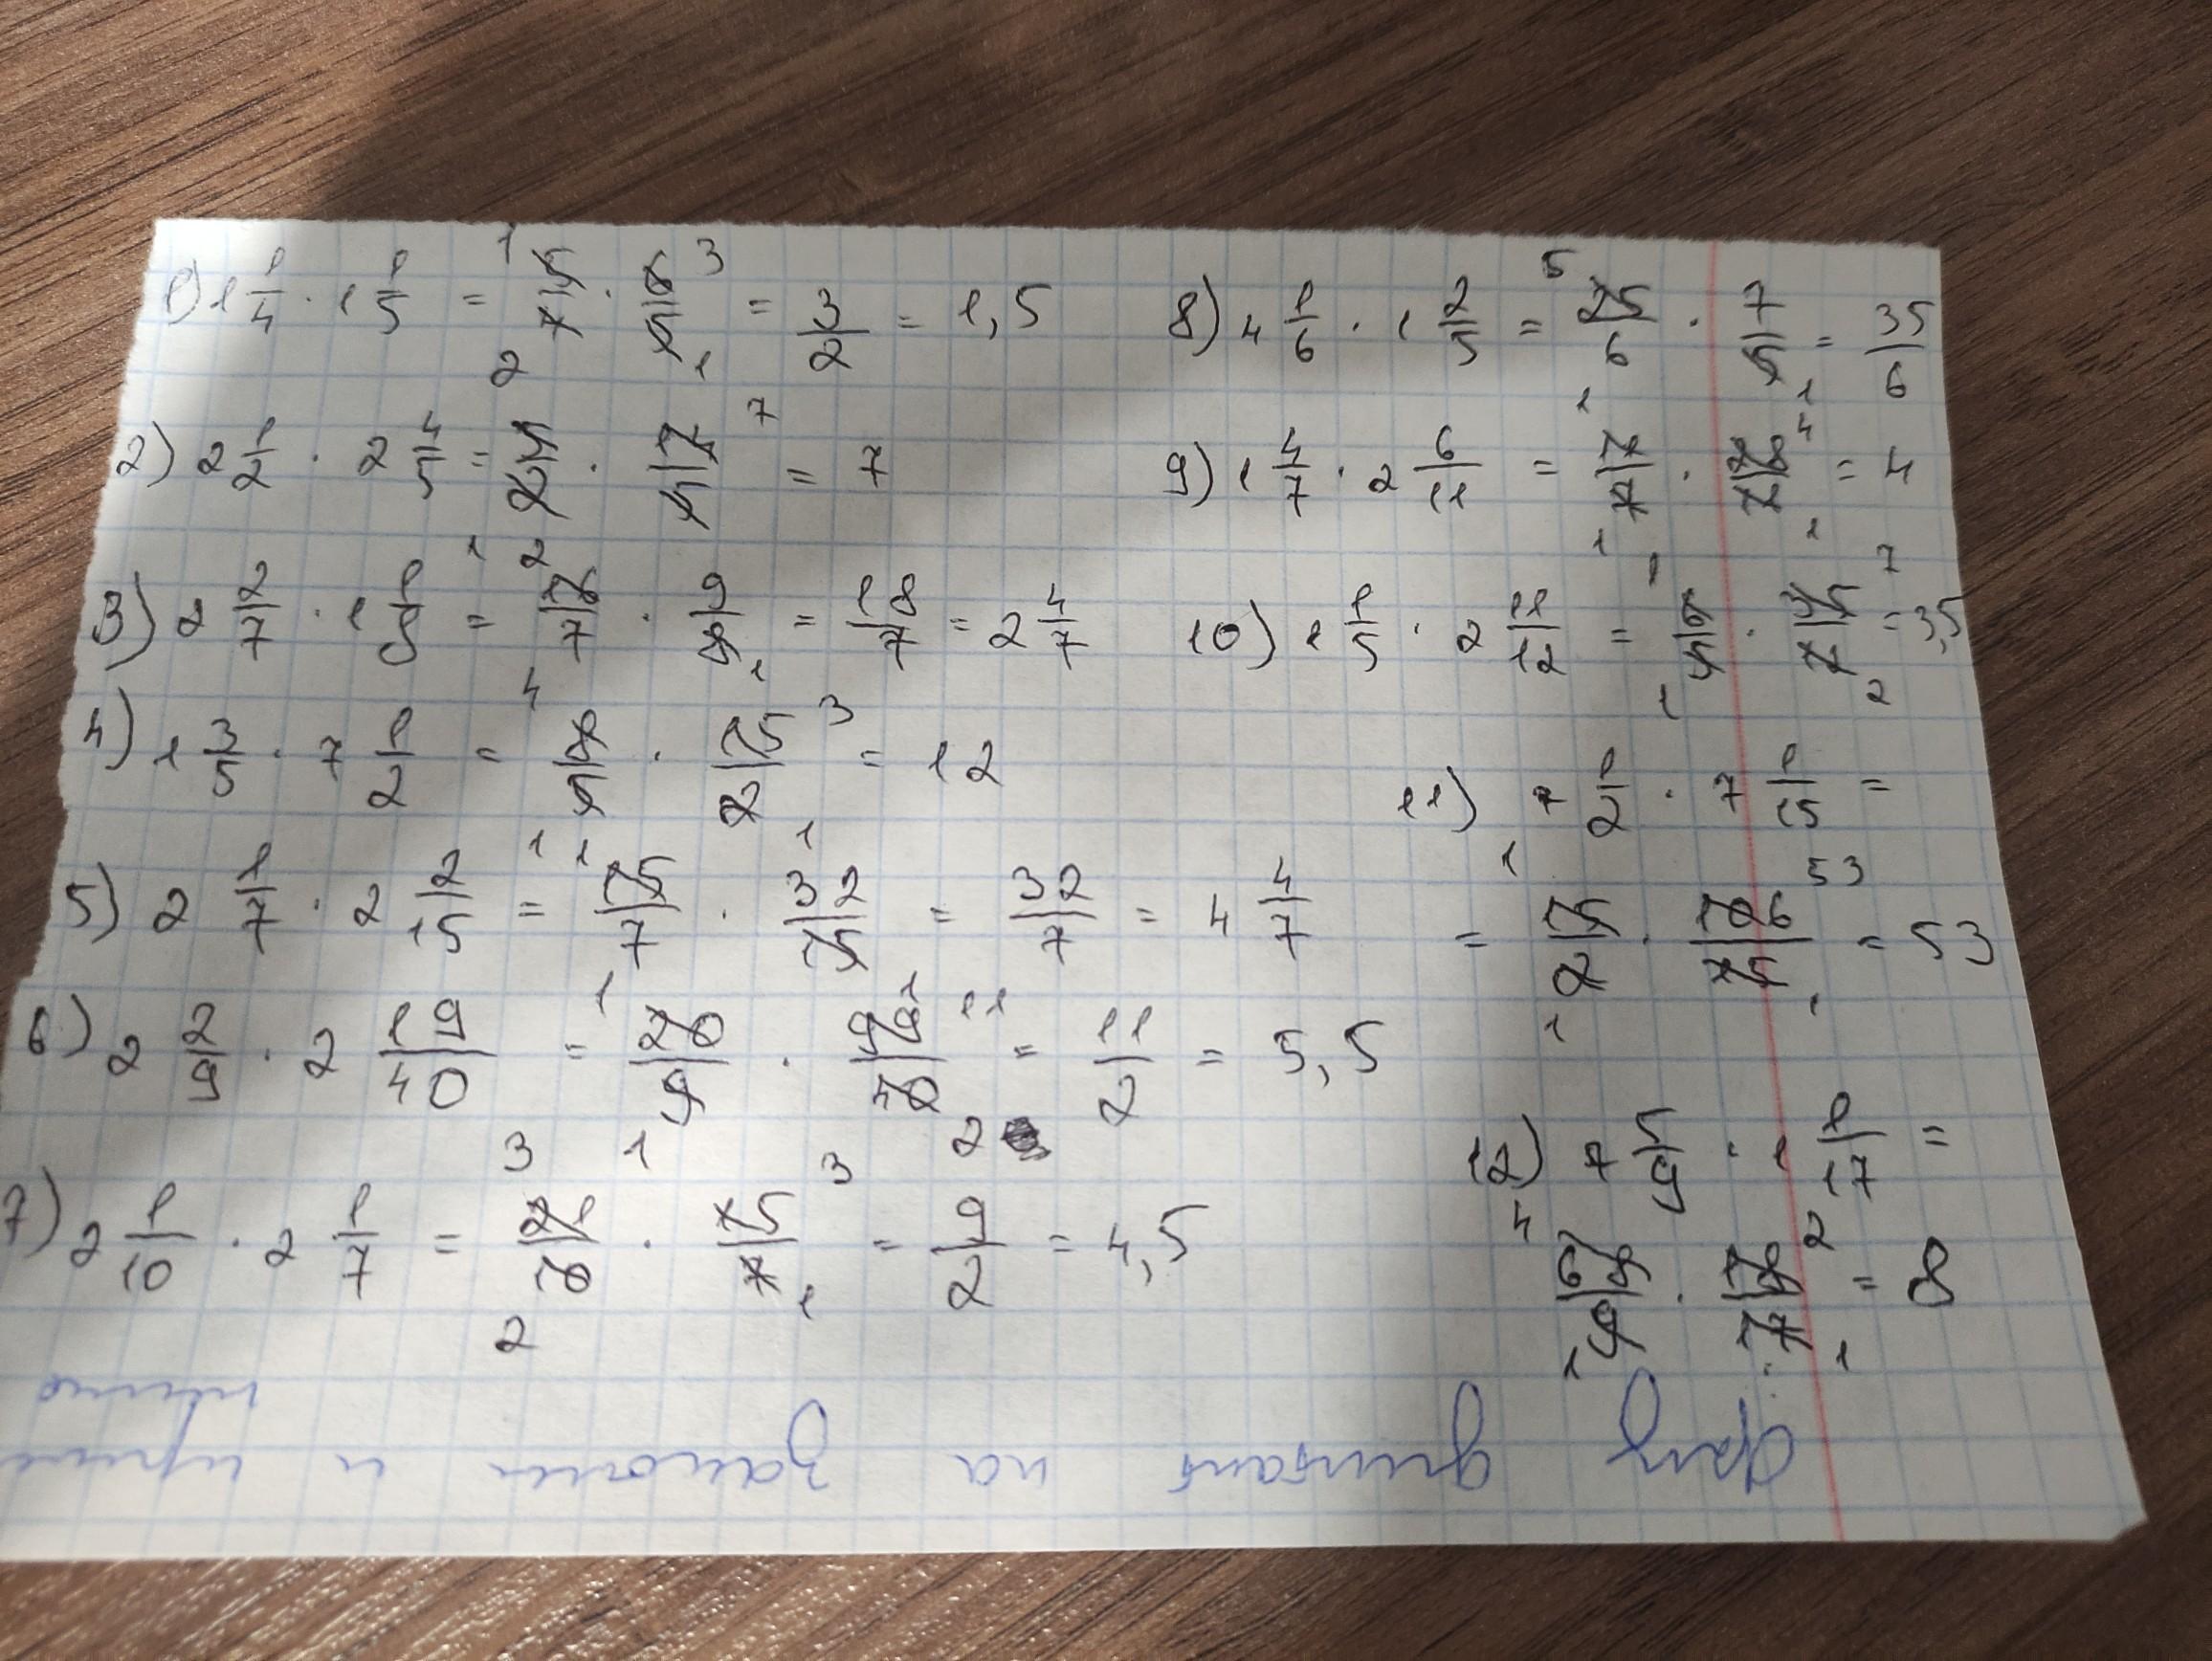 1) 1 1/4 · 1 1/5 = 5/4 · 6/5 = 3/2 = 1,5
2) 2 1/2 · 2 4/5 = 5/2 · 14/5 = 7
3) 2 2/7 · 1 1/8 = 16/7 · 9/8 = 18/7 = 2 4/7
4) 1 3/5 · 7 1/2 = 8/5 · 15/2 = 12
5) 2 1/7 · 2 2/15 = 15/7 · 32/15 = 32/7 = 4 4/7
6) 2 2/9 · 2 19/40 = 20/9 · 99/40 = 11/2 = 5,5
7) 2 1/10 · 2 1/7 = 21/10 · 15/7 = 9/2 = 4,5
8) 4 1/6 · 1 2/5 = 25/6 · 7/5 = 35/6
9) 1 4/7 · 2 6/11 = 11/7 · 28/11 = 4
10) 1 1/5 · 2 11/12 = 6/5 · 35/12 = 3,5
11) 7 1/2 · 7 1/15 =
= 15/2 · 106/15 = 53
12) 7 5/9 · 1 1/17 =
68/9 · 18/17 = 8
на
и